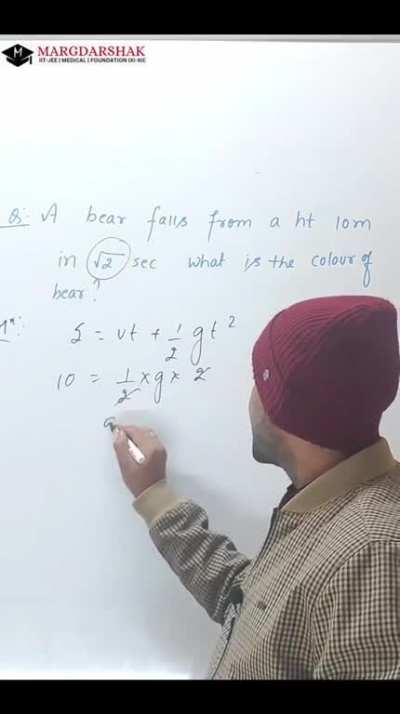 M
MARGDARSHAK
IIT-JEE | MEDICAL | FOUNDATION (XI-XII)
Q: A bear falls from a ht 10m
in √2 sec what is the colour of
bear?
S = ut + 1/2 gt²
10 = 1/2 x g x 2